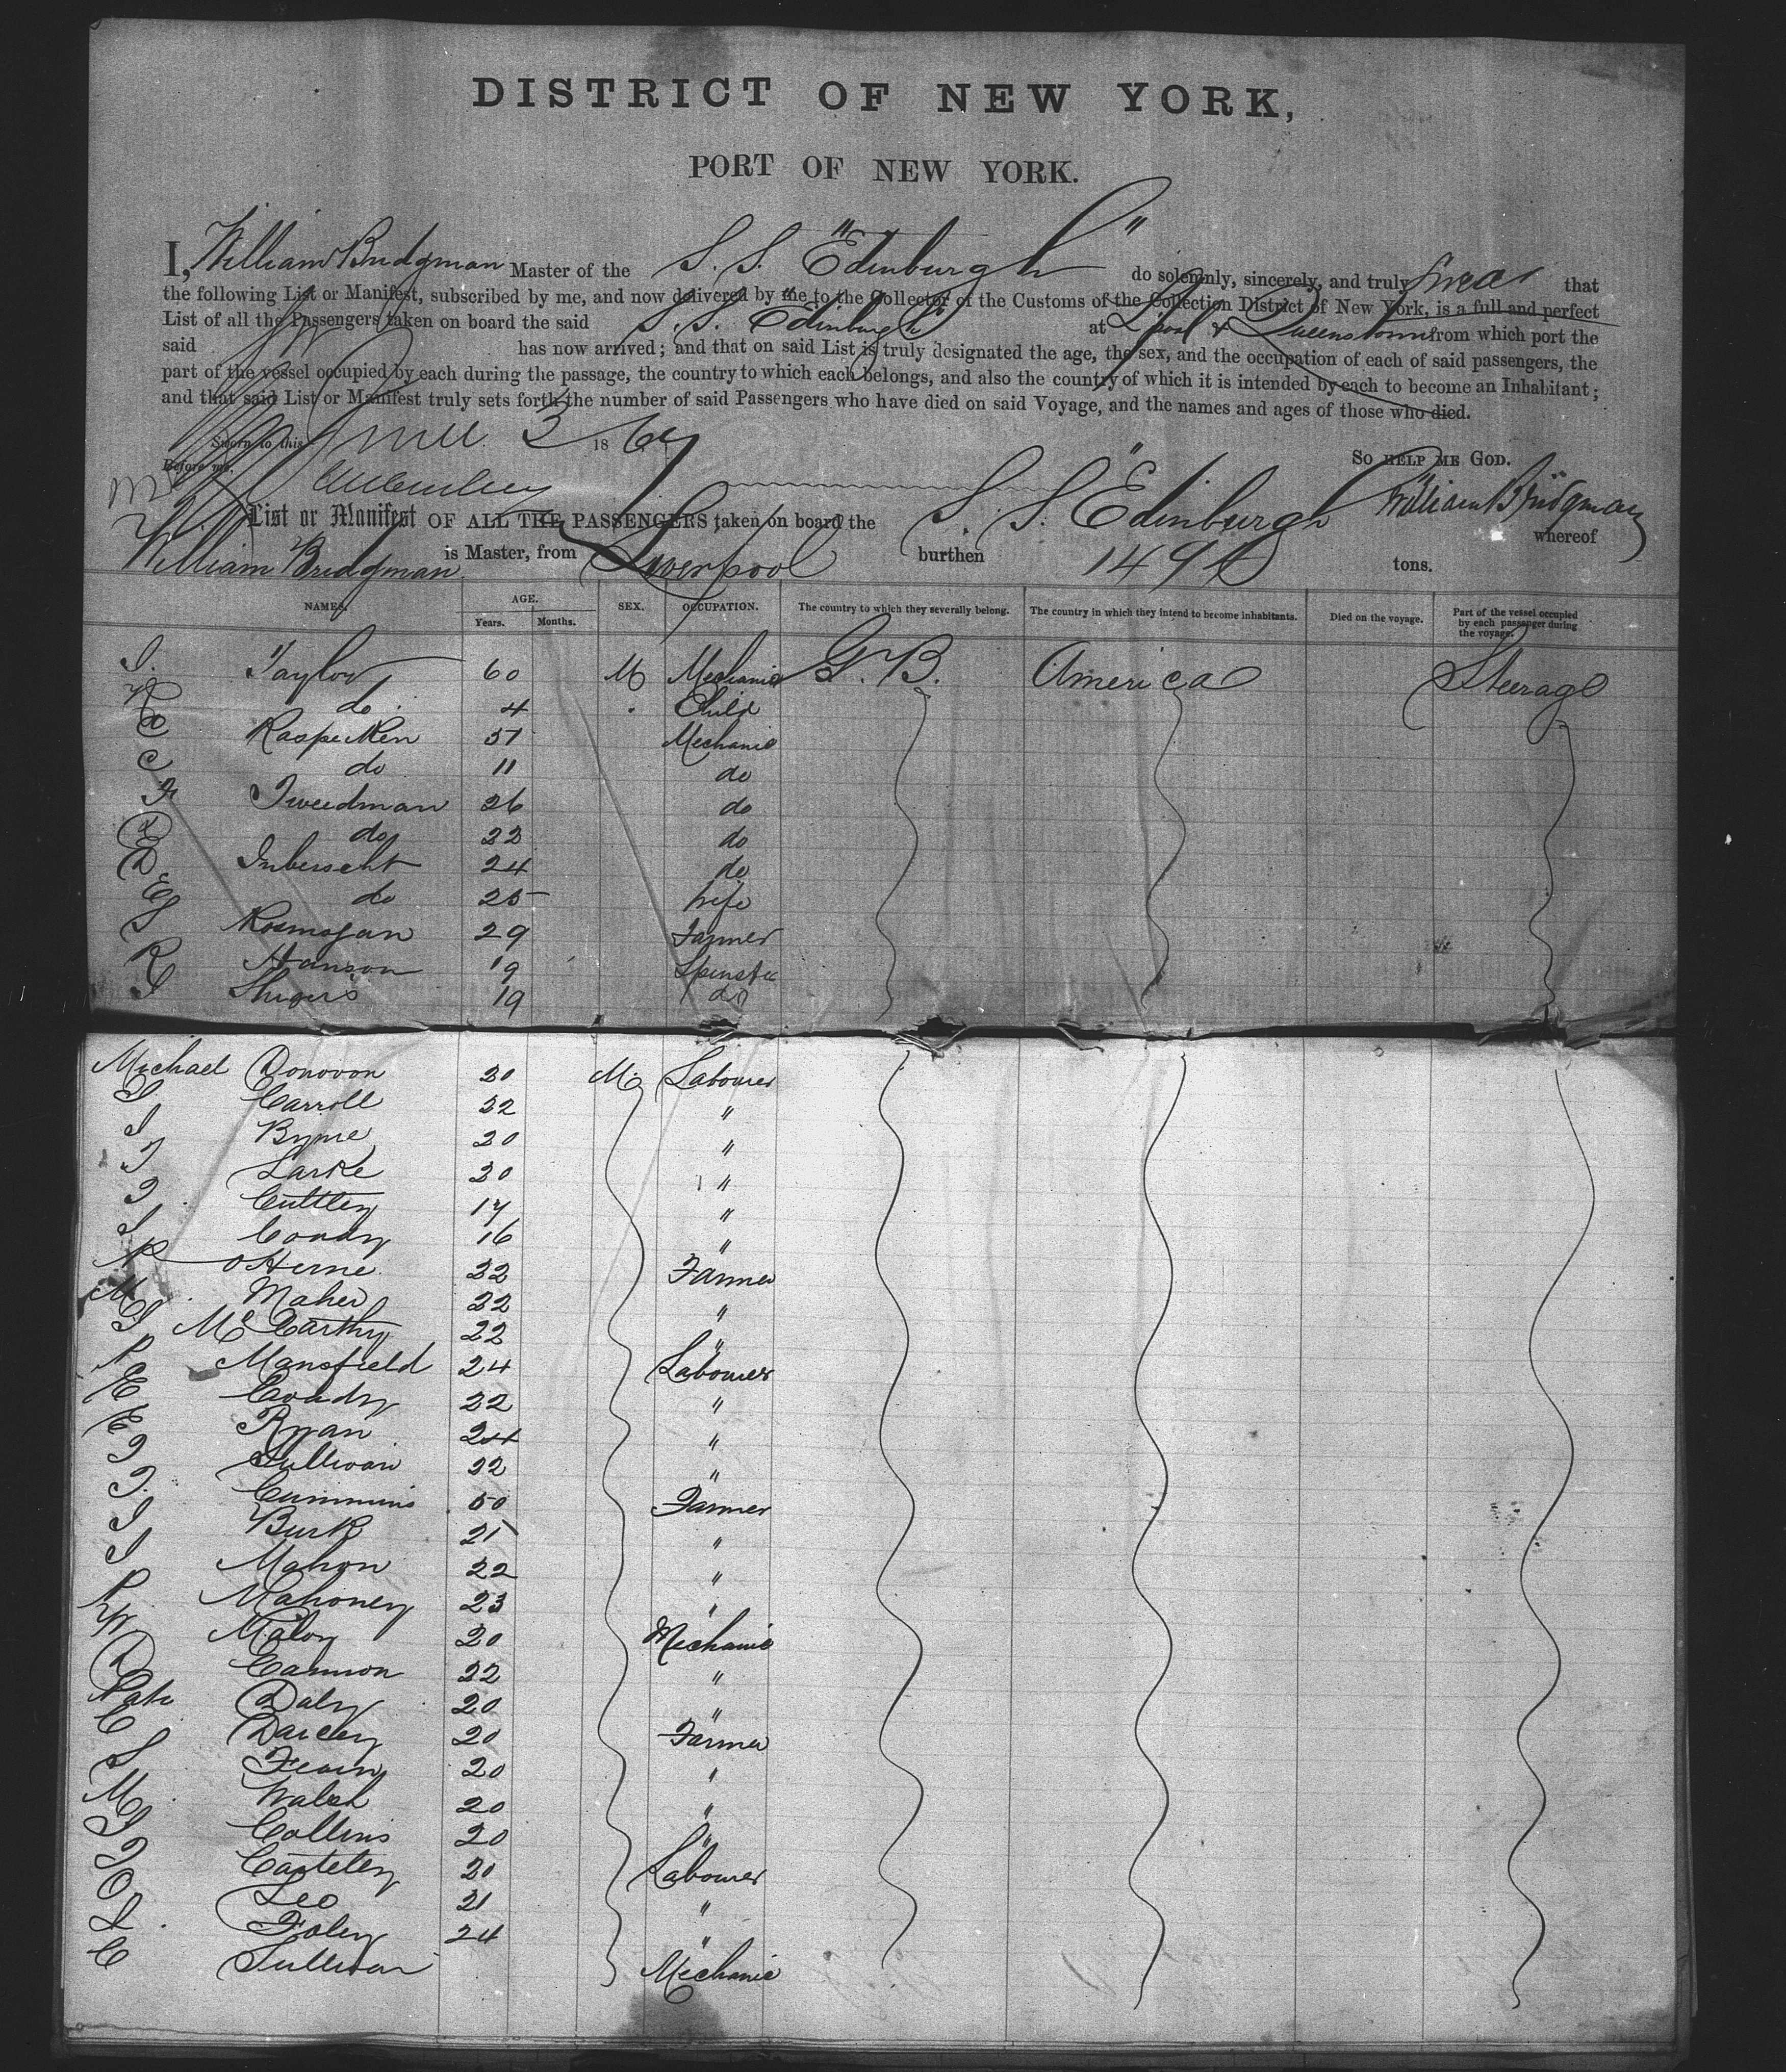 DISTRICT OF NEW YORK,
PORT OF NEW YORK.
I, William Bridgman Master of the S. S. "Edinburgh" do solemnly, sincerely, and truly swear that
the following List or Manifest, subscribed by me, and now delivered by me to the Collector of the Customs of the Collection District of New York, is a full and perfect
List of all the Passengers taken on board the said S.S. Edinburgh at L'pool & Queenstown from which port the
said has now arrived; and that on said List is truly designated the age, the sex, and the occupation of each of said passengers, the
part of the vessel occupied by each during the passage, the country to which each belongs, and also the country of which it is intended by each to become an Inhabitant;
and that said List or Manifest truly sets forth the number of said Passengers who have died on said Voyage, and the names and ages of those who died.
Sworn to this June 2 1869
So HELP ME GOD.
Before me,
William Bridgman
List or Manifest OF ALL THE PASSENGERS taken on board the S. S. Edinburgh whereof
William Bridgman is Master, from Liverpool burthen tons.
NAMES. AGE. Years. Months. SEX. OCCUPATION. The country to which they severally belong. The country in which they intend to become inhabitants. Died on the voyage. Part of the vessel occupied by each passenger during the voyage.
Taylor 60 M Mechanic G. B. America Steerage
do 4 Child
C 51 Mechanic
C do 11 do
F Tweedman 26 do
do 22 do
D 24 do
E do 25 wife
29 Farmer
R Hanson 19 Spinster
19 do
Michael Donovon 20 M Labourer
J Carroll 22 "
J Byrne 20 "
T Larke 20 "
T Cuttley 17 "
J Coady 16 "
P O'Herne 22 Farmer
M Maher 22 "
J McCarthy 22 "
P Mansfield 24 Labourer
E Coady 22 "
E Ryan 24 "
T Sullivan 22 "
T. Cummins 50 Farmer
J Burk 21 "
J Mahon 22 "
P Mahoney 23 "
W Maloy 20 Mechanic
D Cannon 22 "
Pat Daly 20 "
C Darcey 20 Farmer
20 "
M Walsh 20 "
J Collins 20 "
T 20 Labourer
O Leo 21 "
L Foley 24 "
C Sullivan Mechanic